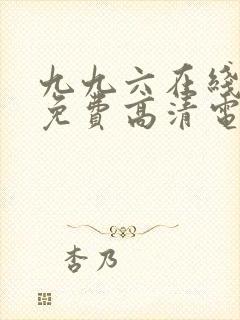 九九六在线
免费高清电
杏乃